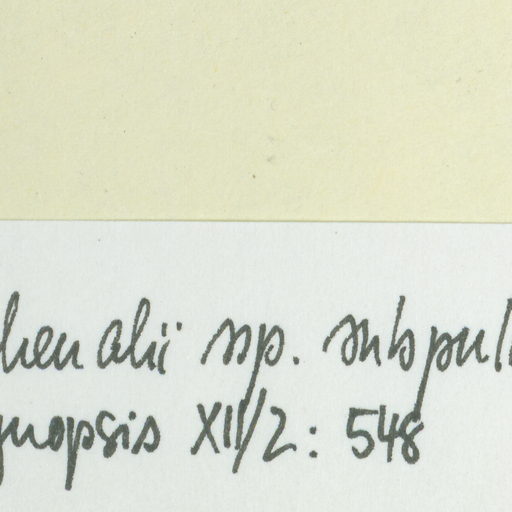 henalii ssp. subpul
ynopsis XII/2: 548